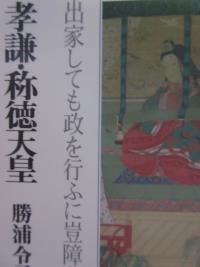 出家しても政を行ふに豈障
孝謙・称徳天皇
勝浦令